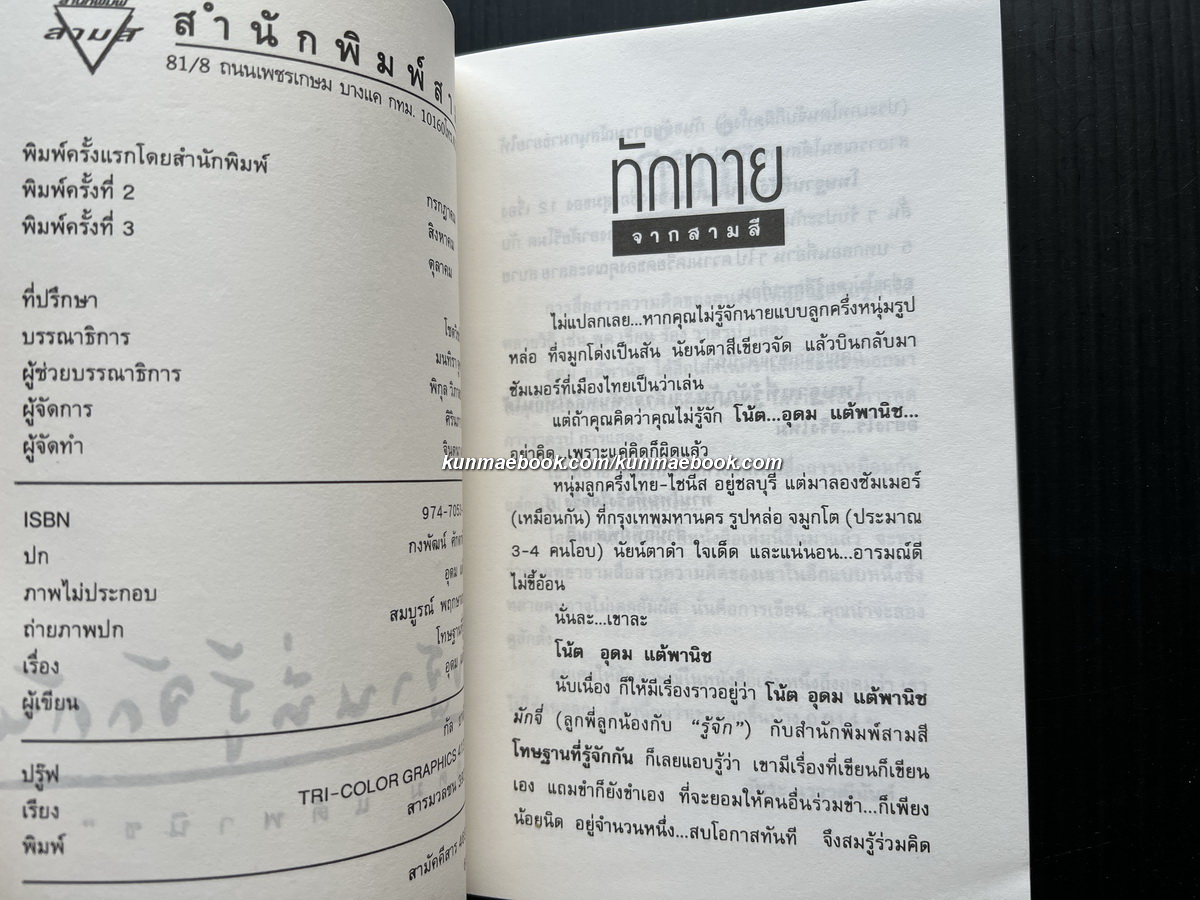 สามสี
สำนักพิมพ์สา
81/8 ถนนเพชรเกษม บางแค กทม. 10160
พิมพ์ครั้งแรกโดยสำนักพิมพ์
พิมพ์ครั้งที่ 2 กรกฎาคม
พิมพ์ครั้งที่ 3 สิงหาคม
ตุลาคม
ที่ปรึกษา
บรรณาธิการ
ผู้ช่วยบรรณาธิการ มนทิรา
ผู้จัดการ พิกุล
ผู้จัดทำ
ISBN 974-705
ปก กงพัฒน์
ภาพไม่ประกอบ อุดม
ถ่ายภาพปก สมบูรณ์
เรื่อง โทษฐาน
ผู้เขียน อุดม
ปรู๊ฟ
เรียง TRI-COLOR GRAPHICS
พิมพ์ สารมวลชน
สามัคคีสาร
ทักทาย
จากสามสี
ไม่แปลกเลย...หากคุณไม่รู้จักนายแบบลูกครึ่งหนุ่มรูป
หล่อ ที่จมูกโด่งเป็นสัน นัยน์ตาสีเขียวจัด แล้วบินกลับมา
ซัมเมอร์ที่เมืองไทยเป็นว่าเล่น
แต่ถ้าคุณคิดว่าคุณไม่รู้จัก โน้ต...อุดม แต้พานิช...
อย่าคิด...เพราะแค่คิดก็ผิดแล้ว
kunmaebook.com/kunmaebook.com
หนุ่มลูกครึ่งไทย-ไชนีส อยู่ชลบุรี แต่มาลองซัมเมอร์
(เหมือนกัน) ที่กรุงเทพมหานคร รูปหล่อ จมูกโต (ประมาณ
3-4 คนโอบ) นัยน์ตาดำ ใจเด็ด และแน่นอน...อารมณ์ดี
ไม่ขี้อ้อน
นั่นละ...เขาละ
โน้ต อุดม แต้พานิช
นับเนื่อง ก็ให้มีเรื่องราวอยู่ว่า โน้ต อุดม แต้พานิช
มักจี่ (ลูกพี่ลูกน้องกับ “รู้จัก”) กับสำนักพิมพ์สามสี
โทษฐานที่รู้จักกัน ก็เลยแอบรู้ว่า เขามีเรื่องที่เขียนก็เขียน
เอง แถมขำก็ยังขำเอง ที่จะยอมให้คนอื่นร่วมขำ...ก็เพียง
น้อยนิด อยู่จำนวนหนึ่ง...สบโอกาสทันที จึงสมรู้ร่วมคิด